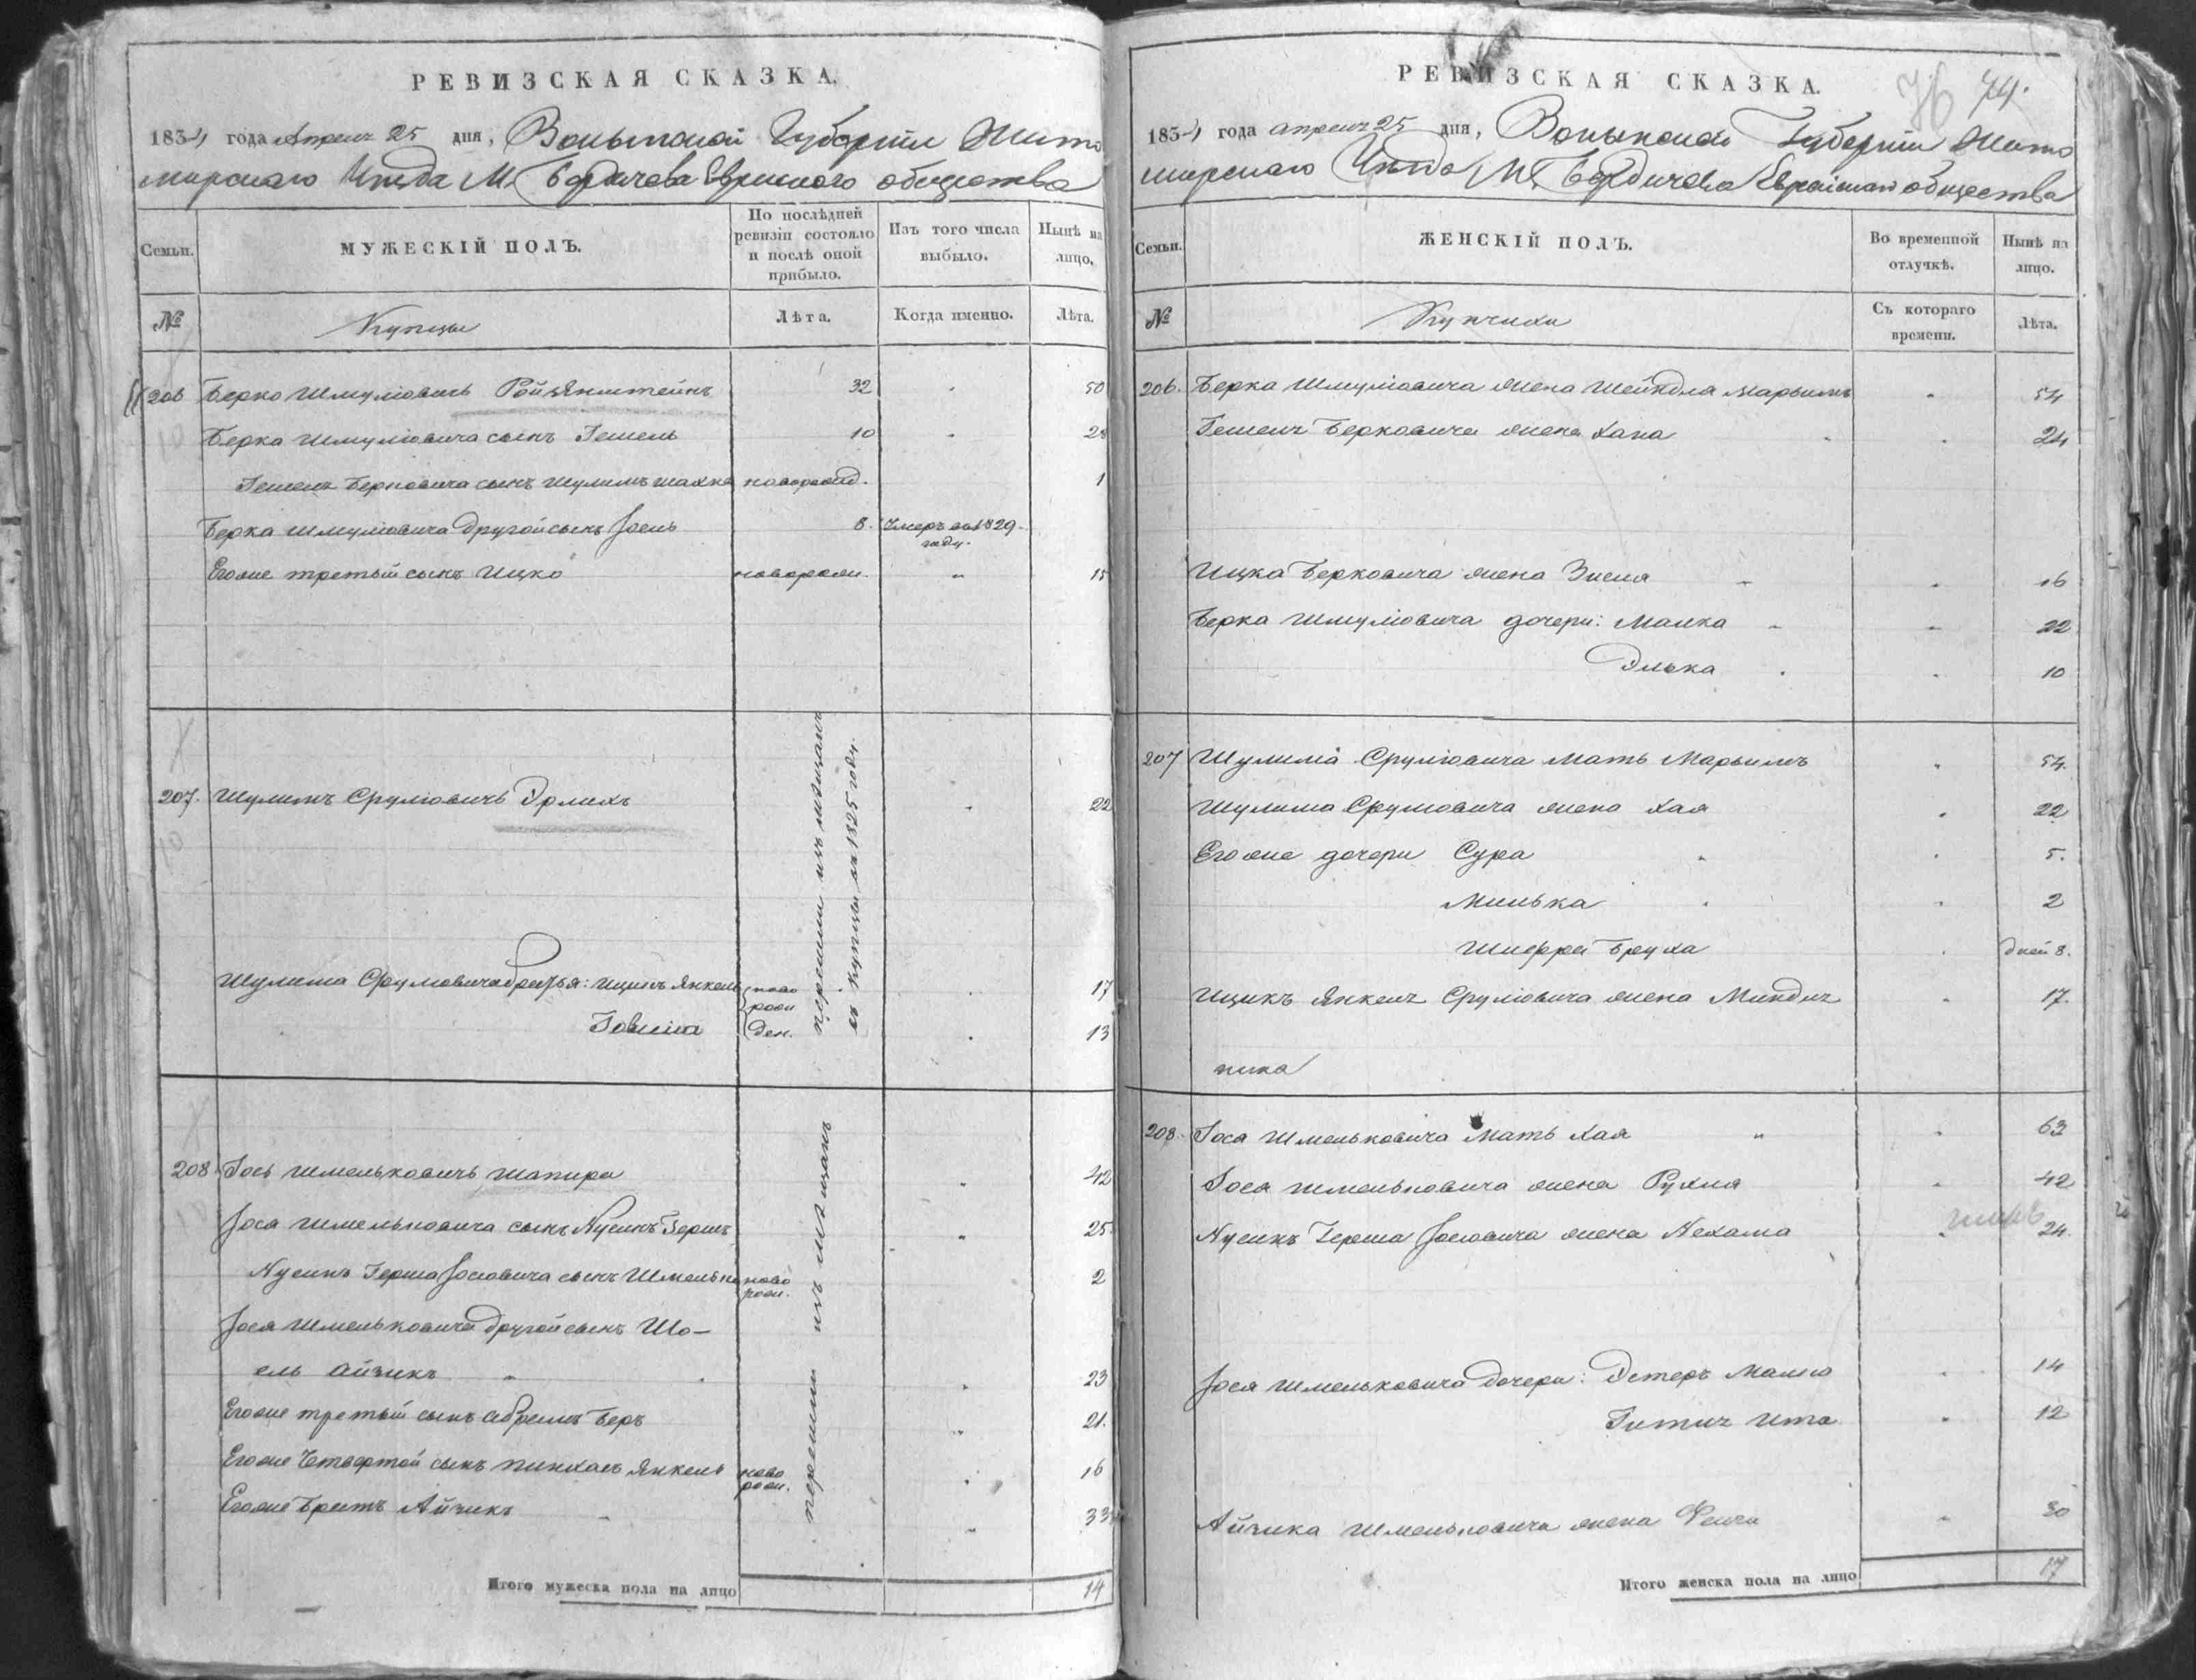 РЕВИЗСКАЯ СКАЗКА.
1834 года Апреля 25 дня, Волынской Губернии Жито
мирскаго Уезда М. Бердичева Еврейского общества
Семьи.
МУЖЕСКІЙ ПОЛЪ.
По послѣдней ревизіи состояло и послѣ оной прибыло.
Изъ того числа выбыло.
Нынѣ на лицо.
№
Купцы
Лѣта.
Когда именно.
Лѣта.
206 Берко Шмулiовичь Ройзенштейнъ 32 50
Берка Шмулiовича сынъ Гешель 10 28
Гешеля Берковича сынъ Шулимъ Шахна новорожд. 1
Берка Шмулiовича другой сынъ Іосль 8. Умеръ въ 1829 году.
Егоже третьiй сынъ Ицко новорожд. 15
207. Шулимъ Срулiовичь Эрлихъ 22
перешли изъ мещанъ
въ купцы въ 1825 году.
Шулима Срулiовича братья: Ицикъ Янкель ново 17
рож
ден. 13
208 Іось Шмельковичь Шапира 42
Іося Шмельковича сынъ Нусинъ Гершъ 25
Нусинъ Герша Іосiовича сынъ Шмелько новорож. 2
Іося Шмельковича другой сынъ Шо-
ель Айзикъ 23
Егоже третьiй сынъ Абрамъ Беръ 21.
Егоже Четвертой сынъ Пинхасъ Янкель новорож. 16
Егоже Братъ Айзикъ 33
перешли изъ мещанъ
Итого мужеска пола на лицо 14
РЕВИЗСКАЯ СКАЗКА.
76 74.
1834 года апреля 25 дня, Волынской Губернии Жито
мирскаго Уезда М. Бердичева Еврейскаго общества
Семьи.
ЖЕНСКІЙ ПОЛЪ.
Во временной отлучкѣ.
Нынѣ на лицо.
№
Купчихи
Съ котораго времени.
Лѣта.
206. Берка Шмулiовича жена Шейндля Марьимъ 54
Гешеля Берковича жена Хана 24
Ицка Берковича жена Зисля 16
Берка Шмулiовича дочери: Малка 22
Элька 10
207 Шулима Срулiовича Мать Марьимъ 54.
Шулима Срулiовича жена Хая 22
Егоже дочери Сура 5.
Милька 2
Шифра Бруха дней 8.
Ицикъ Янкеля Срулiовича жена Миндля 17.
208. Іося Шмельковича Мать Хая 63
Іося Шмельковича жена Рухля 42
Нусинъ Герша Іосiовича жена Нехама 24.
Іося Шмельковича Дочери: Эстеръ Малка 14
Гитля Ита 12
Айзика Шмельковича жена Фейга 30
Итого женска пола на лицо 17